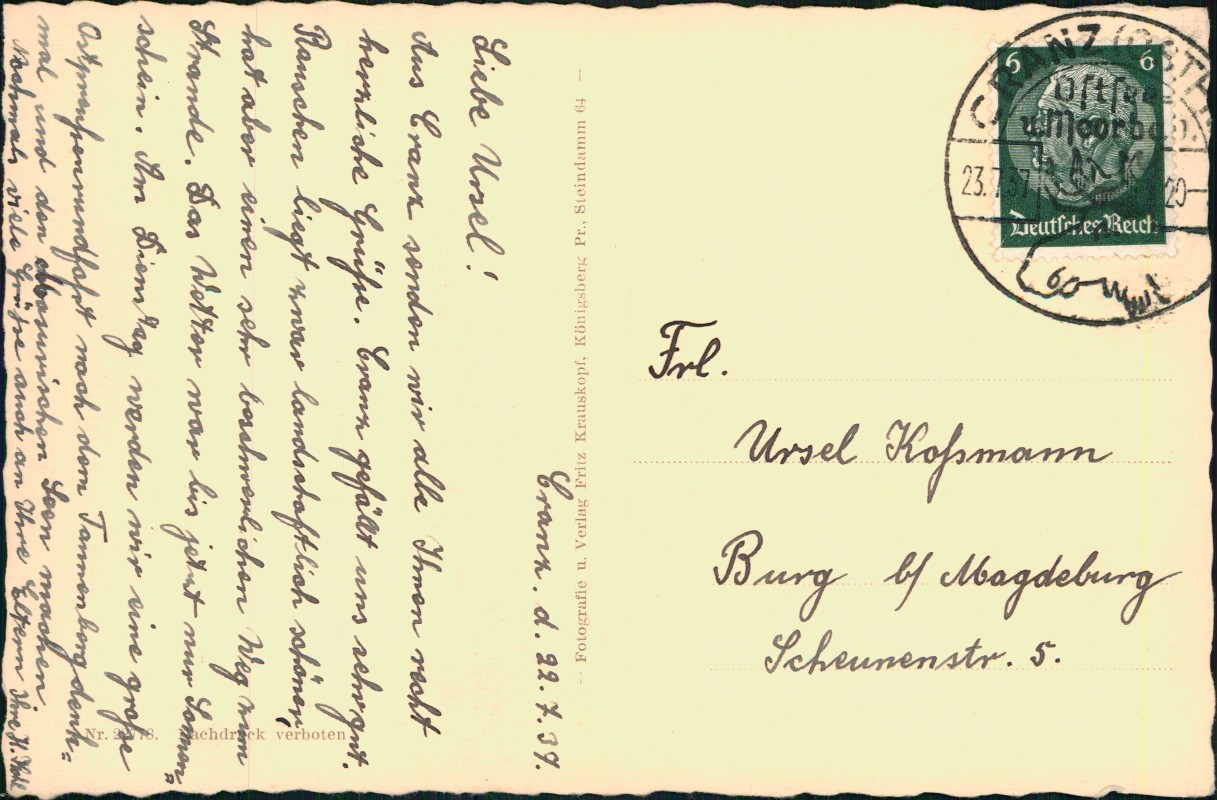 Cranz. d. 22.7.39.
Liebe Ursel!
Aus Cranz senden wir alle Ihnen recht
herzliche Grüße. Cranz gefällt uns sehr gut.
Rauschen liegt zwar landschaftlich schöner,
hat aber einen sehr beschwerlichen Weg zum
Strande. Das Wetter war bis jetzt nur Sonnen=
schein. Am Dienstag werden wir eine große
Ostpreußenrundfahrt nach dem Tannenbergdenk=
mal und den Masurischen Seen machen.
Nochmals viele Grüße auch an Ihre Eltern Ihre H.
Nr. Nachdruck verboten
– Fotografie u. Verlag Fritz Krauskopf, Königsberg Pr., Steindamm 64 –
CRANZ (OSTPR
23.7. 20
6 6
Deutsches Reich
Frl.
Ursel Koßmann
Burg b/ Magdeburg
Scheunenstr. 5.